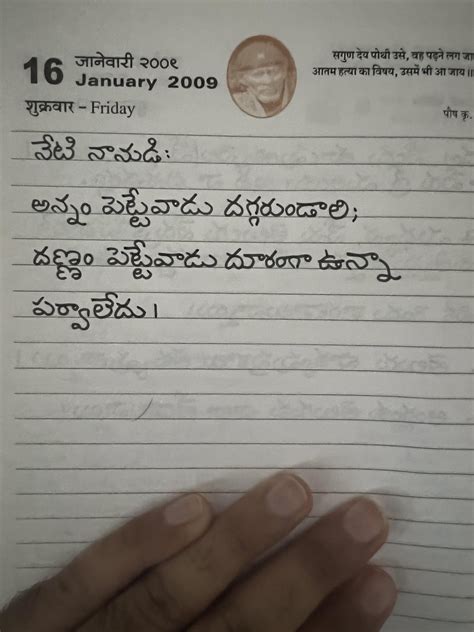 16 जानेवारी २००९
January 2009
शुक्रवार – Friday
सगुण देय पोथी उसे, वह पढ़ने लग जा
आतम हत्या का विषय, उसमें भी आ जाय ॥
पौष कृ.
నేటి నానుడి:
అన్నం పెట్టేవాడు దగ్గరుండాలి;
దణ్ణం పెట్టేవాడు దూరంగా ఉన్నా
పర్వాలేదు।